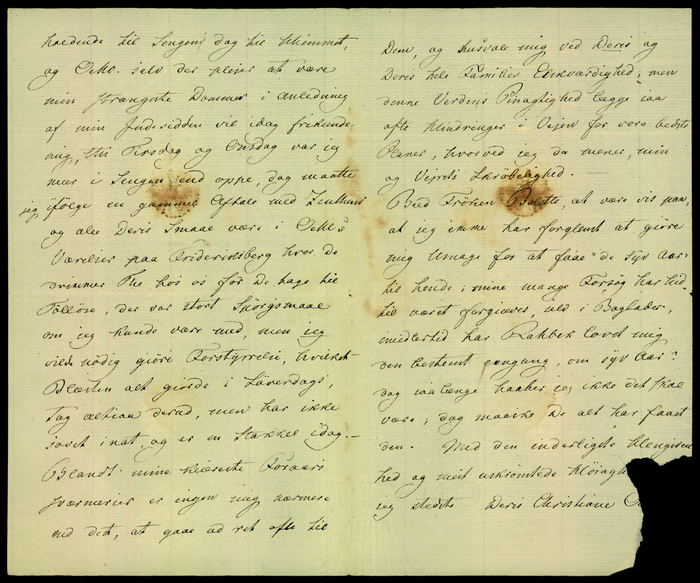 holdende til Sengen; dag til Himmet,
og Oehl. selv der pleier at være
min strængeste Dommer i Anledning
af min Indesidden vil idag frikiende
mig, thi Tirsdag og Onsdag var jeg
meer i Sengen end oppe, dog maatte
jeg ifölge en gammel Aftale med
og alle Deris Smaae være i Oehl's
Værelser paa Friderichsberg hvor De
drinker The hos os før De tage til
Tölløse, der var stort Spörgsmaal
om jeg kunde være med, men jeg
vilde nödig giöre Forstyrrelse, hvilket
Blæsten alt giorde i Löverdags,
tog altsaa derud, men har ikke
sovet inat, og er en Stakkel idag. —
Blandt mine kiæreste Foraars
sværmerier er ingen mig nærmere
end det, at gaae ud ret ofte til
Dem, og husvale mig ved Deris og
Deris hele Families Elskværdighed; men
denne Verdens Pinaglighed lægge saa
ofte Hindringer i Veien for vore bedste
Planer, hvorved jeg da mener, min
og Veirets Skröbelighed.
Bed Fröken at være vis paa,
at jeg ikke har forglemt at giöre
mig Umage for at faae "de syv Aar"
til hende; mine mange Forsög har hid-
til været forgieves, ald i Boglader,
imidlertid har Rahbek lovet mig
den bestemt eengang, om syv Aar?
dog saalænge haaber jeg ikke det skal
være; dog maaske De alt har faaet
den. Med den inderligste Hengiven
hed og meit uskrömtede
jeg stedste Deris Christiane